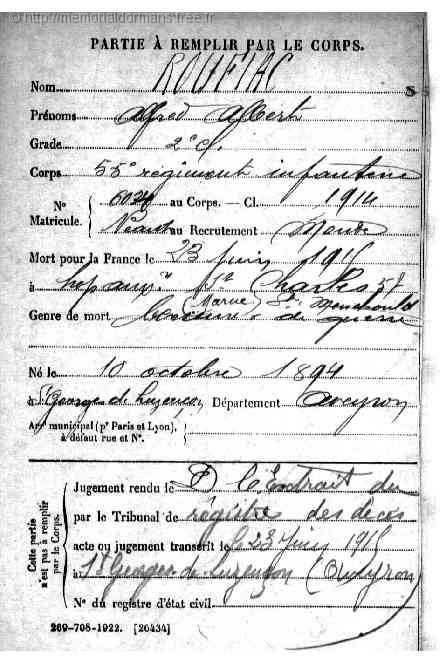 http://memorialdormans.free.fr
PARTIE À REMPLIR PAR LE CORPS.
Nom ROUFIAC
Prénoms Alfred Albert
Grade 2e cl.
Corps 55e régiment infanterie
N° Matricule. { 6024 au Corps. — Cl. 1914
Néant au Recrutement Mende
Mort pour la France le 23 Juin 1915
à hop aux. Charles
(Marne) Ste Menehould
Genre de mort de guerre
Né le 10 octobre 1894
à St Georges de Luzençon Département Aveyron
Arr^t municipal (p^r Paris et Lyon), à défaut rue et N°.
Cette partie n'est pas à remplir par le Corps.
Jugement rendu le D l'Extrait du
par le Tribunal de régistre des décès
acte ou jugement transcrit le 23 Juin 1915
à St Georges de Luzençon (Aveyron)
N° du registre d'état civil
269-708-1922. [26434]